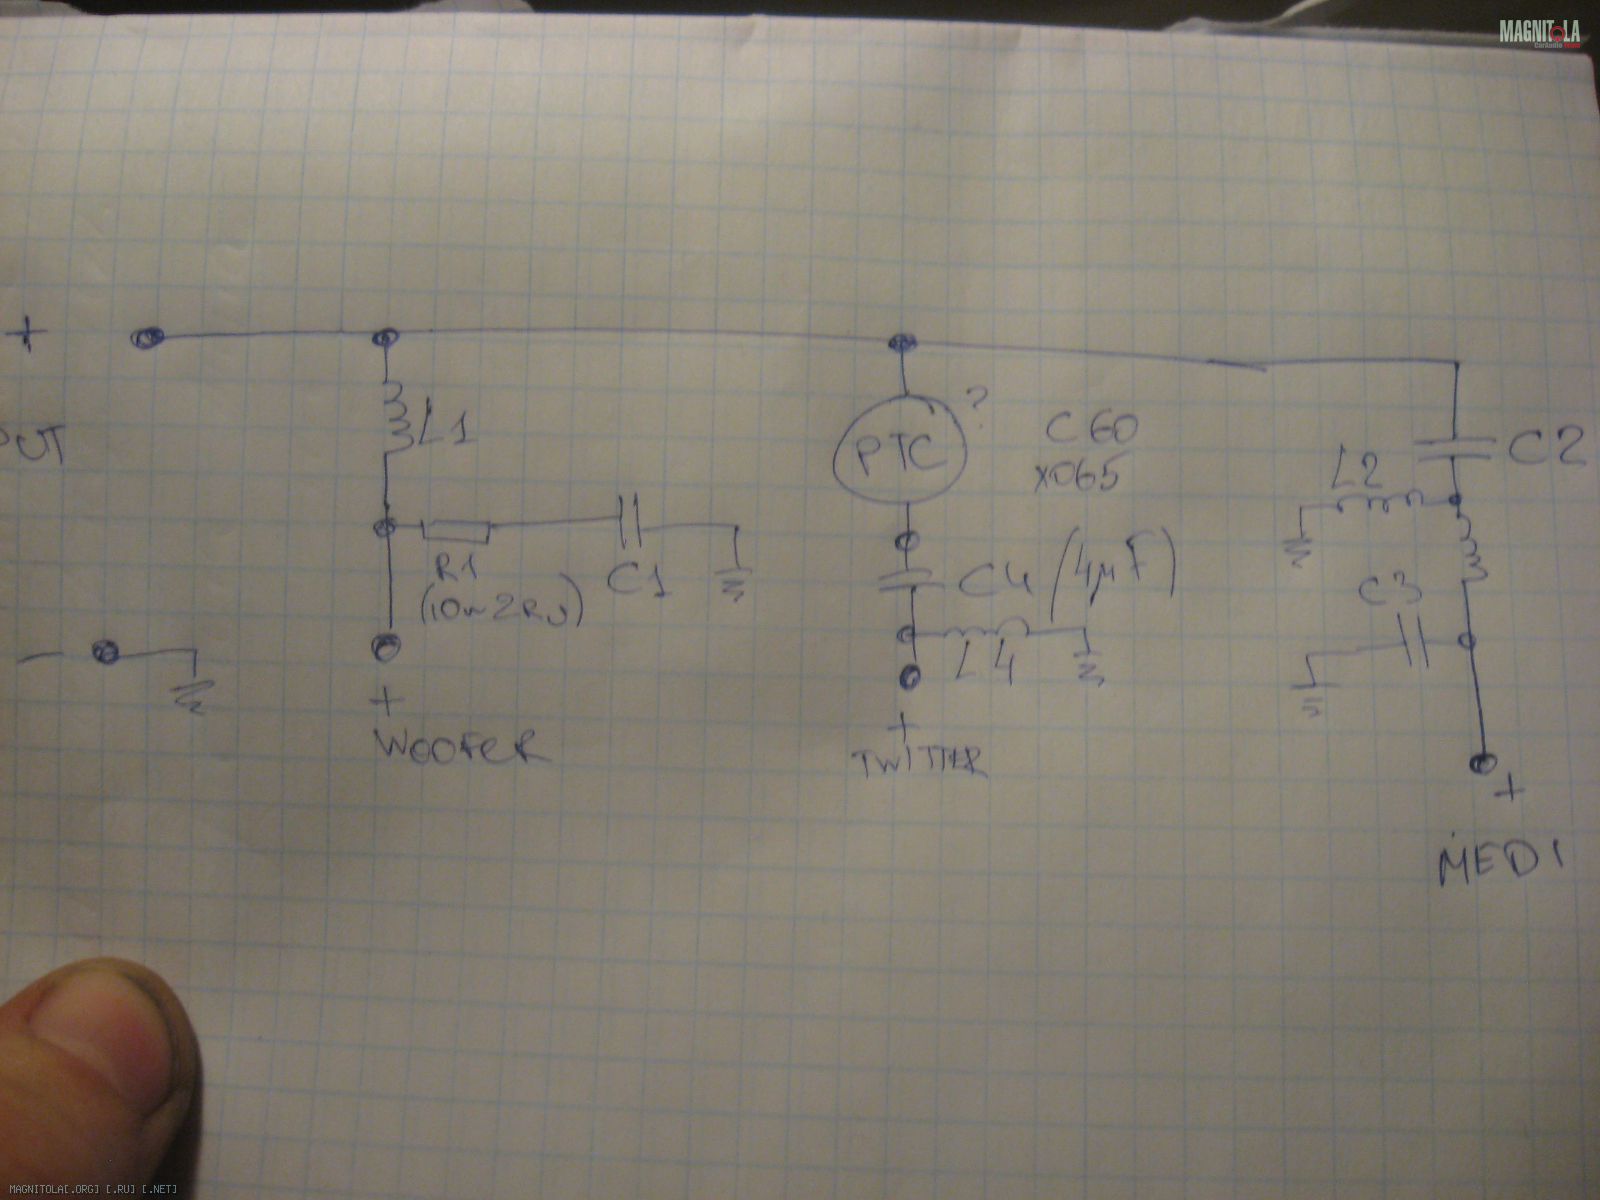 MAGNITOLA
+
L1
PTC
?
C60
X065
C2
L2
R1
C1
C4 (4µF)
C3
L4
—
+
WOOFER
+
TWITTER
+
MEDI
MAGNITOLA[.ORG] [.RU] [.NET]